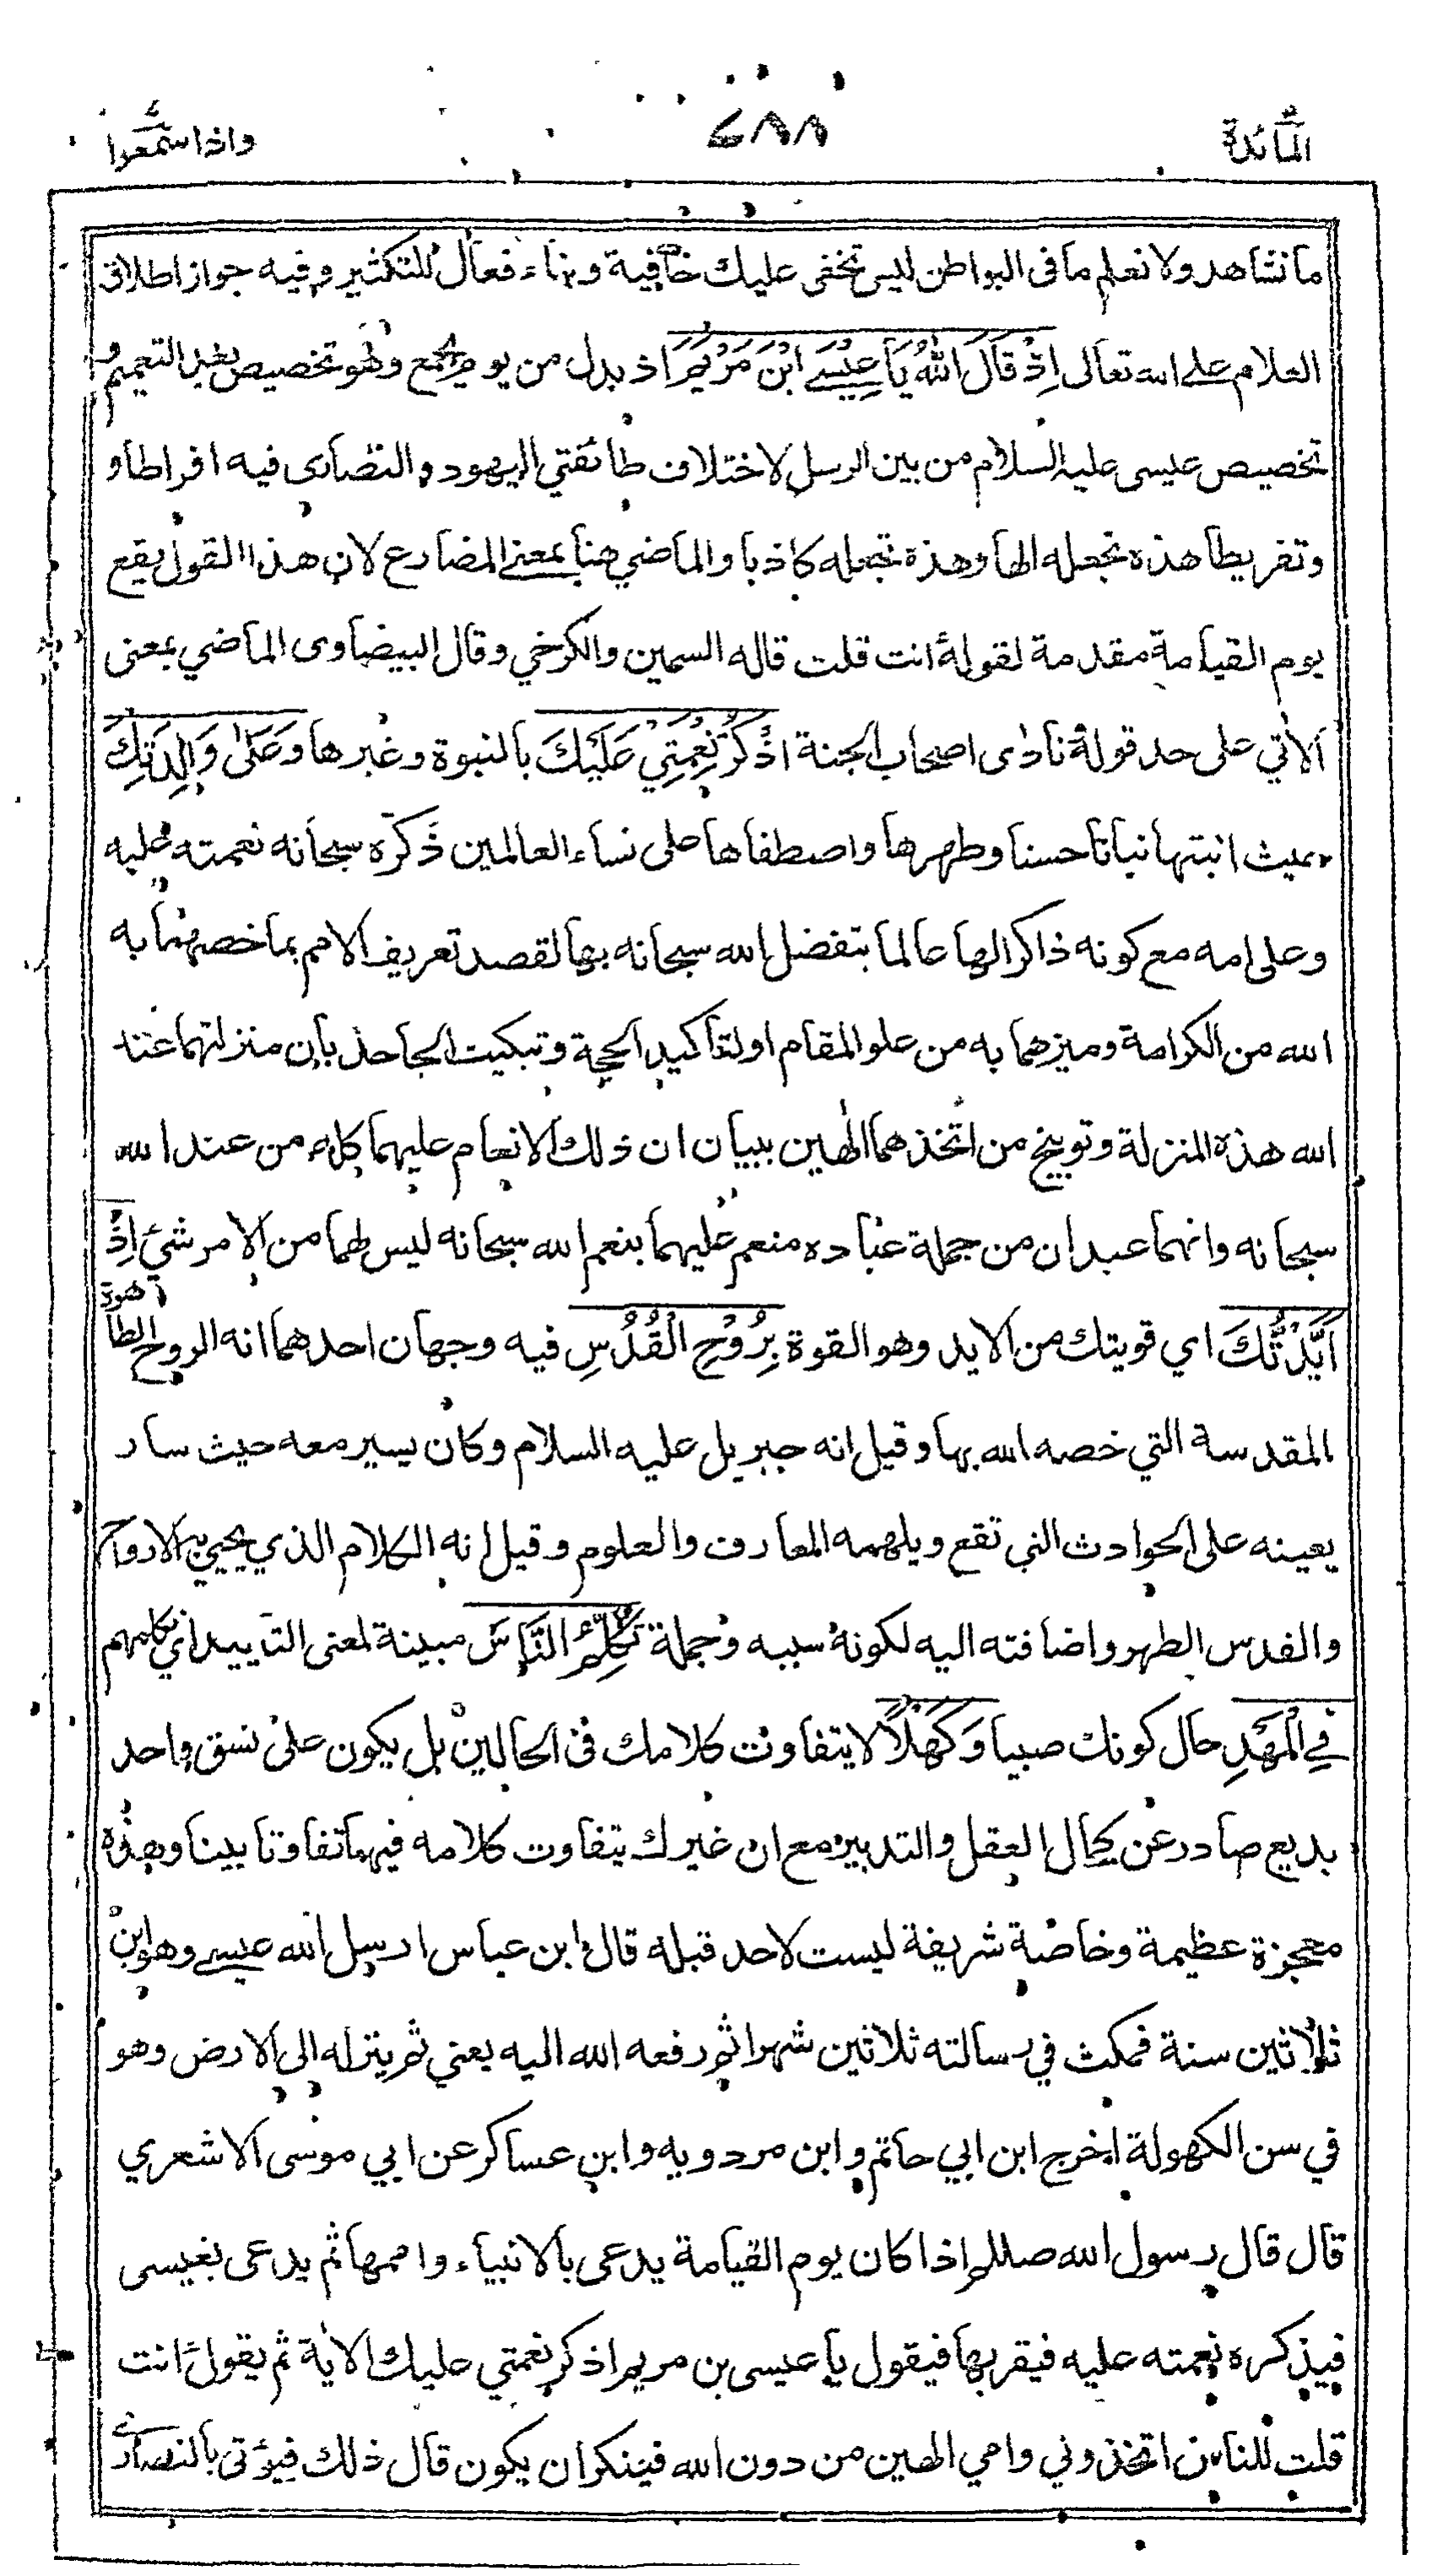 المائدة ٤٨٨ واذا سمعوا
ما نشاهد ولا نعلم ما فى البواطن ليس تخفى عليك خافية وبناء فعال للتكثير وفيه جواز اطلاق
العلام على الله تعالى اِذْ قَالَ اللهُ يَا عِيْسَى ابْنَ مَرْيَمَ اذ بدل من يوم الجمع وهو تخصيص بعد التعميم و
تخصيص عيسى عليه السلام من بين الرسل لاختلاف طائفتي اليهود والنصارى فيه افراطا و
وتفريطا هذه تجعله الها وهذه تجعله كاذبا والماضي هنا بمعنى المضارع لان هذا القول يقع
يوم القيامة مقدمة لقوله أانت قلت قاله السمين والكرخي وقال البيضاوى الماضي بمعنى
الآتي على حد قوله نادى اصحاب الجنة اذْكُرْ نِعْمَتِيْ عَلَيْكَ بالنبوة وغيرها وَعَلٰى وَالِدَتِكَ
بحيث انبتها نباتا حسنا وطهرها واصطفاها على نساء العالمين ذَكَّره سبحانه نعمته عليه
وعلى امه مع كونه ذاكرا لها عالما بتفضل الله سبحانه بها لقصد تعريف الامم بما خصهما به
الله من الكرامة وميزهما به من علو المقام او لتأكيد الحجة وتبكيت الجاحد بان منزلتهما عند
الله هذه المنزلة وتوبيخ من اتخذهما الٰهين ببيان ان ذلك الانعام عليهما كله من عند الله
سبحانه وانهما عبدان من جملة عباده منعم عليهما بنعم الله سبحانه ليس لهما من الامر شيئ اِذْ
اَيَّدْتُّكَ اي قويتك من الايد وهو القوة بِرُوْحِ الْقُدُسِ فيه وجهان احدهما انه الروح الطاهرة
المقدسة التي خصه الله بها وقيل انه جبريل عليه السلام وكان يسير معه حيث سار
يعينه على الحوادث التي تقع ويلهمه المعارف والعلوم وقيل انه الكلام الذي يحيي به الارواح
والقدس الطهر واضافته اليه لكونه سببه وجملة تُكَلِّمُ النَّاسَ مبينة لمعنى التأييد اي تكلمهم
فِي الْمَهْدِ حال كونك صبيا وَكَهْلًا لا يتفاوت كلامك فى الحالين بل يكون على نسق واحد
بديع صادر عن كمال العقل والتدبير مع ان غيرك يتفاوت كلامه فيهما تفاوتا بينا وهذه
معجزة عظيمة وخاصة شريفة ليست لاحد قبله قال ابن عباس ارسل الله عيسى وهو ابن
ثلاثين سنة فمكث في رسالته ثلاثين شهرا ثم رفعه الله اليه يعني ثم ينزله الى الارض وهو
في سن الكهولة اخرج ابن ابي حاتم وابن مردويه وابن عساكر عن ابي موسى الاشعري
قال قال رسول الله صللم اذا كان يوم القيامة يدعى بالانبياء واممها ثم يدعى بعيسى
فيذكره نعمته عليه فيقر بها فيقول يا عيسى بن مريم اذكر نعمتي عليك الآية ثم يقول أانت
قلت للناس اتخذوني وامي الهين من دون الله فينكر ان يكون قال ذلك فيؤتى بالنصارى